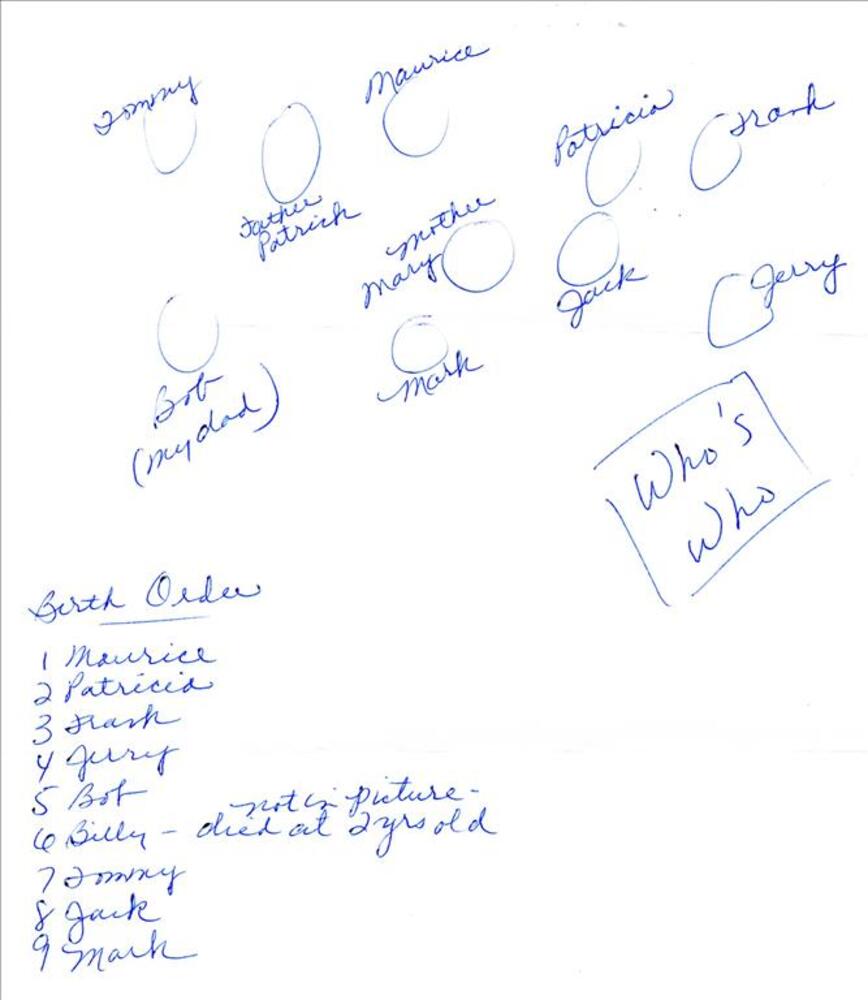 Tommy
Maurice
Patricia
Frank
Father
Patrick
Mother
Mary
Jack
Jerry
Bob
(my dad)
Mark
Who's
Who
Birth Order
1 Maurice
2 Patricia
3 Frank
4 Jerry
5 Bob
6 Billy - died at 2yrs old
not in picture -
7 Tommy
8 Jack
9 Mark